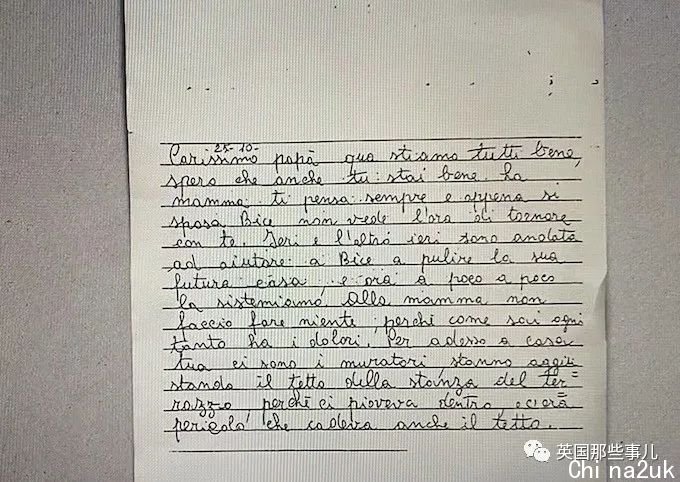 25-10-
Carissimo papà qua stiamo tutti bene,
spero che anche tu stai bene. La
mamma ti pensa sempre e appena si
sposa Bice non vede l'ora di tornare
con te. Ieri e l'altro ieri sono andata
ad aiutare a Bice a pulire la sua
futura casa, e ora a poco a poco
la sistemiamo. Alla mamma non
faccio fare niente, perchè come sai ogni
tanto ha i dolori. Per adesso a casa
tua ci sono i muratori, stanno aggiu
stando il tetto della stanza del ter=
razzo, perchè ci pioveva dentro, e c'era
pericolo che cadeva anche il tetto.
英国那些事儿
Chi na2uk